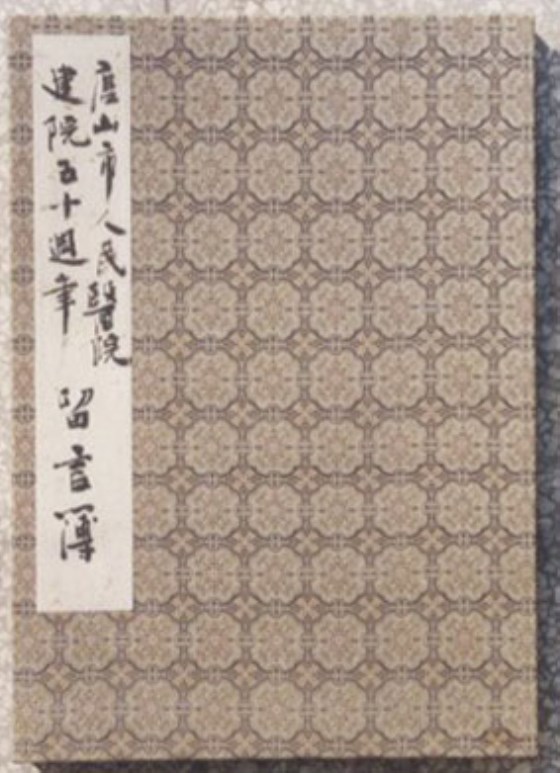 唐山市人民醫院
建院五十週年
留言簿